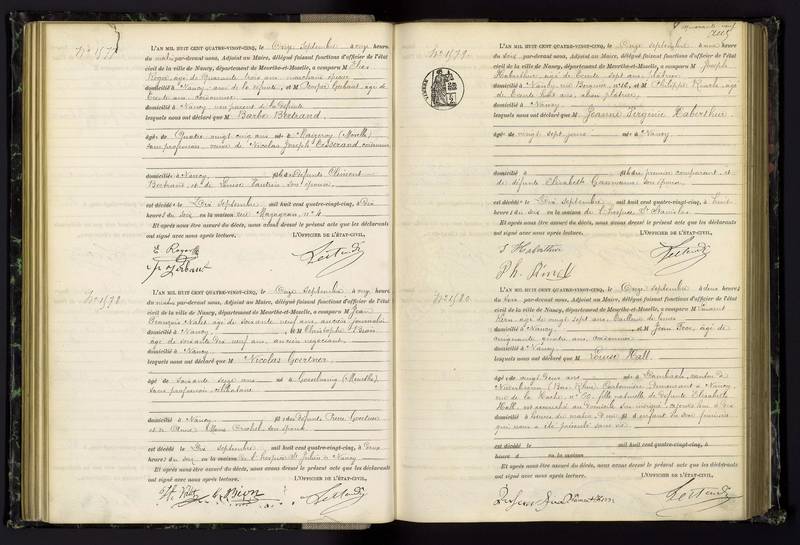 N° 1577
L'AN MIL HUIT CENT QUATRE-VINGT-CINQ, le Onze Septembre à onze heures
du matin par-devant nous, Adjoint au Maire, délégué faisant fonctions d'officier de l'état
civil de la ville de Nancy, département de Meurthe-et-Moselle, a comparu M Elie
Roger, âgé de Quarante trois ans, marchand épicier
domicilié à Nancy, ami de la défunte, et M Joseph Gerbaut, âgé de
Trente ans, cordonnier
domicilié à Nancy non parent de la Défunte
lesquels nous ont déclaré que M Barbe Bertrand
âgée de Quatre vingt cinq ans née à Maizeroy (Moselle)
sans profession, veuve de Nicolas Joseph Tisserand, cordonnier
domiciliée à Nancy, fille de Défunts Clément
Bertrand et de Louise son épouse
est décédée le Dix septembre mil huit cent quatre-vingt-cinq, à Dix
heures du soir en la maison rue n° 4
Et après nous être assuré du décès, nous avons dressé le présent acte que les déclarants
ont signé avec nous après lecture. L'OFFICIER DE L'ÉTAT-CIVIL,
N° 1578
L'AN MIL HUIT CENT QUATRE-VINGT-CINQ, le Onze Septembre à onze heures
du matin par-devant nous, Adjoint au Maire, délégué faisant fonctions d'officier de l'état
civil de la ville de Nancy, département de Meurthe-et-Moselle, a comparu M Jean
François âgé de soixante neuf ans, ancien journalier
domicilié à Nancy et M Christophe Bion
âgé de soixante dix neuf ans, ancien négociant
domicilié à Nancy
lesquels nous ont déclaré que M Nicolas Goertner
âgé de soixante seize ans né à (Moselle)
sans profession, célibataire
domicilié à Nancy fils de défunts Pierre Goertner
et de Anne Marie son épouse
est décédé le Dix septembre mil huit cent quatre-vingt-cinq, à Deux
heures du soir en la maison de l'hospice St Julien à Nancy
Et après nous être assuré du décès, nous avons dressé le présent acte que les déclarants
ont signé avec nous après lecture. L'OFFICIER DE L'ÉTAT-CIVIL,
N° 1579
L'AN MIL HUIT CENT QUATRE-VINGT-CINQ, le Onze septembre à une heure
du soir, par-devant nous, Adjoint au Maire, délégué faisant fonctions d'officier de l'état
civil de la ville de Nancy, département de Meurthe-et-Moselle, a comparu M Joseph
Haberthur âgé de Trente sept ans, plâtrier
domicilié à Nancy, rue n° 16, et M Philippe âgé
de Trente huit ans, aussi plâtrier
domicilié à Nancy
lesquels nous ont déclaré que M Jeanne Virginie Haberthur
âgée de vingt sept jours née à Nancy
domiciliée à fille du premier comparant et
de défunte Elisabeth son épouse
est décédée le Dix septembre mil huit cent quatre-vingt-cinq, à huit
heures du soir en la maison de l'hospice St Stanislas
Et après nous être assuré du décès, nous avons dressé le présent acte que les déclarants
ont signé avec nous après lecture. L'OFFICIER DE L'ÉTAT-CIVIL,
J Haberthur
N° 1580
L'AN MIL HUIT CENT QUATRE-VINGT-CINQ, le Onze Septembre à deux heures
du soir par-devant nous, Adjoint au Maire, délégué faisant fonctions d'officier de l'état
civil de la ville de Nancy, département de Meurthe-et-Moselle, a comparu M Vincent
Kern âgé de vingt sept ans, tailleur de
domicilié à Nancy et M Jean âgé de
cinquante quatre ans, cordonnier
domicilié à Nancy
lesquels nous ont déclaré que M Louise Hall
âgée de vingt deux ans née à Dambach, canton de
Niederbronn (Bas Rhin) demeurant à Nancy,
rue de la Hache, n° 50, fille naturelle de défunte Elisabeth
Hall, est accouchée au domicile aujourd'hui à dix
heures du matin, d'un enfant du sexe
qui nous a été présenté sans vie
est décédé le mil huit cent quatre-vingt-cinq, à
heures d en la maison
Et après nous être assuré du décès, nous avons dressé le présent acte que les déclarants
ont signé avec nous après lecture. L'OFFICIER DE L'ÉTAT-CIVIL,